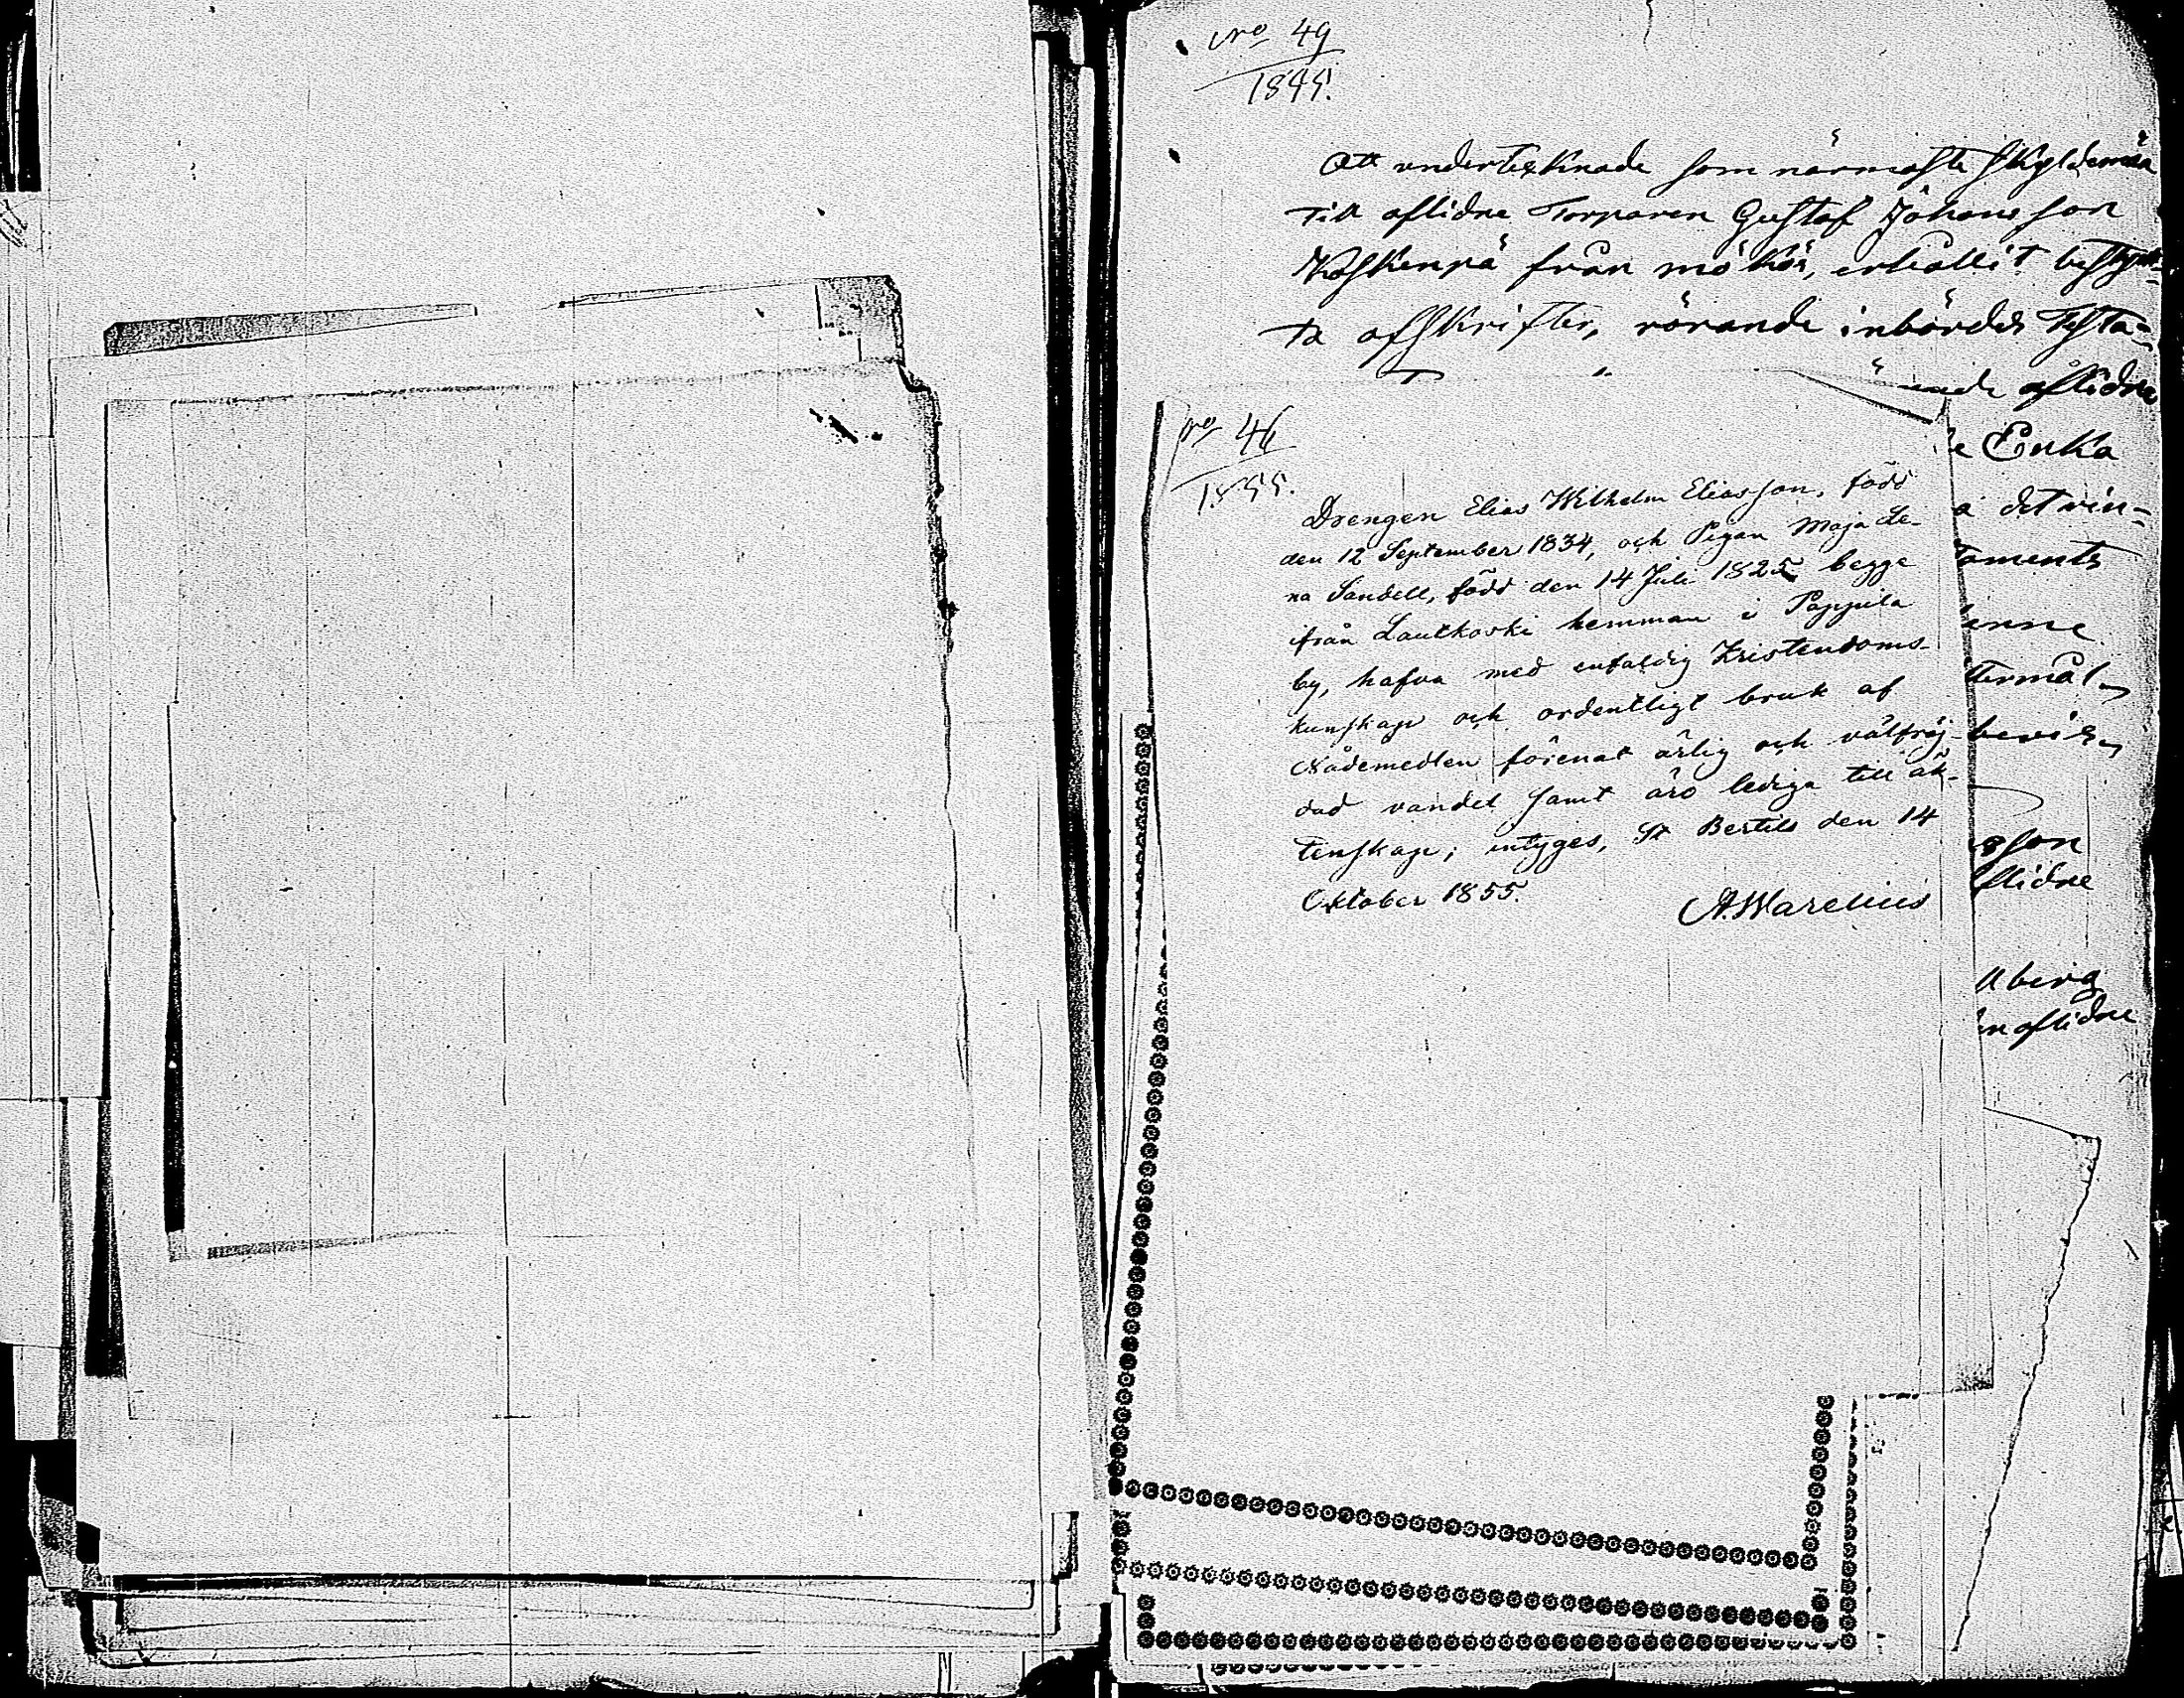 No 49
1855.
Att undertecknade som närmaste skyldemän
till aflidne Torparen Gustaf Johansson
Koskenpä från mökör, erhållit bestyrk-
ta afskrifter, rörande inbördes Testa-
aflidne
Enka
a det vin-
taments
inne
termål
bevis
sson
flidne
llberg
en aflidne
No 46
1855.
Drengen Elias Wilhelm Eliasson, född
den 12 September 1834, och Pigan Maja Le-
na Sandell, född den 14 Juli 1825 begge
ifrån Lautkoski hemman i Pappila
by, hafva med enfaldig Kristendoms-
kunskap och ordentligt bruk af
Nådemedlen förenat ärlig och välfräj-
dad vandel samt äro lediga till äk-
tenskap; intyges, St Bertils den 14
Oktober 1855.
A. Warelius